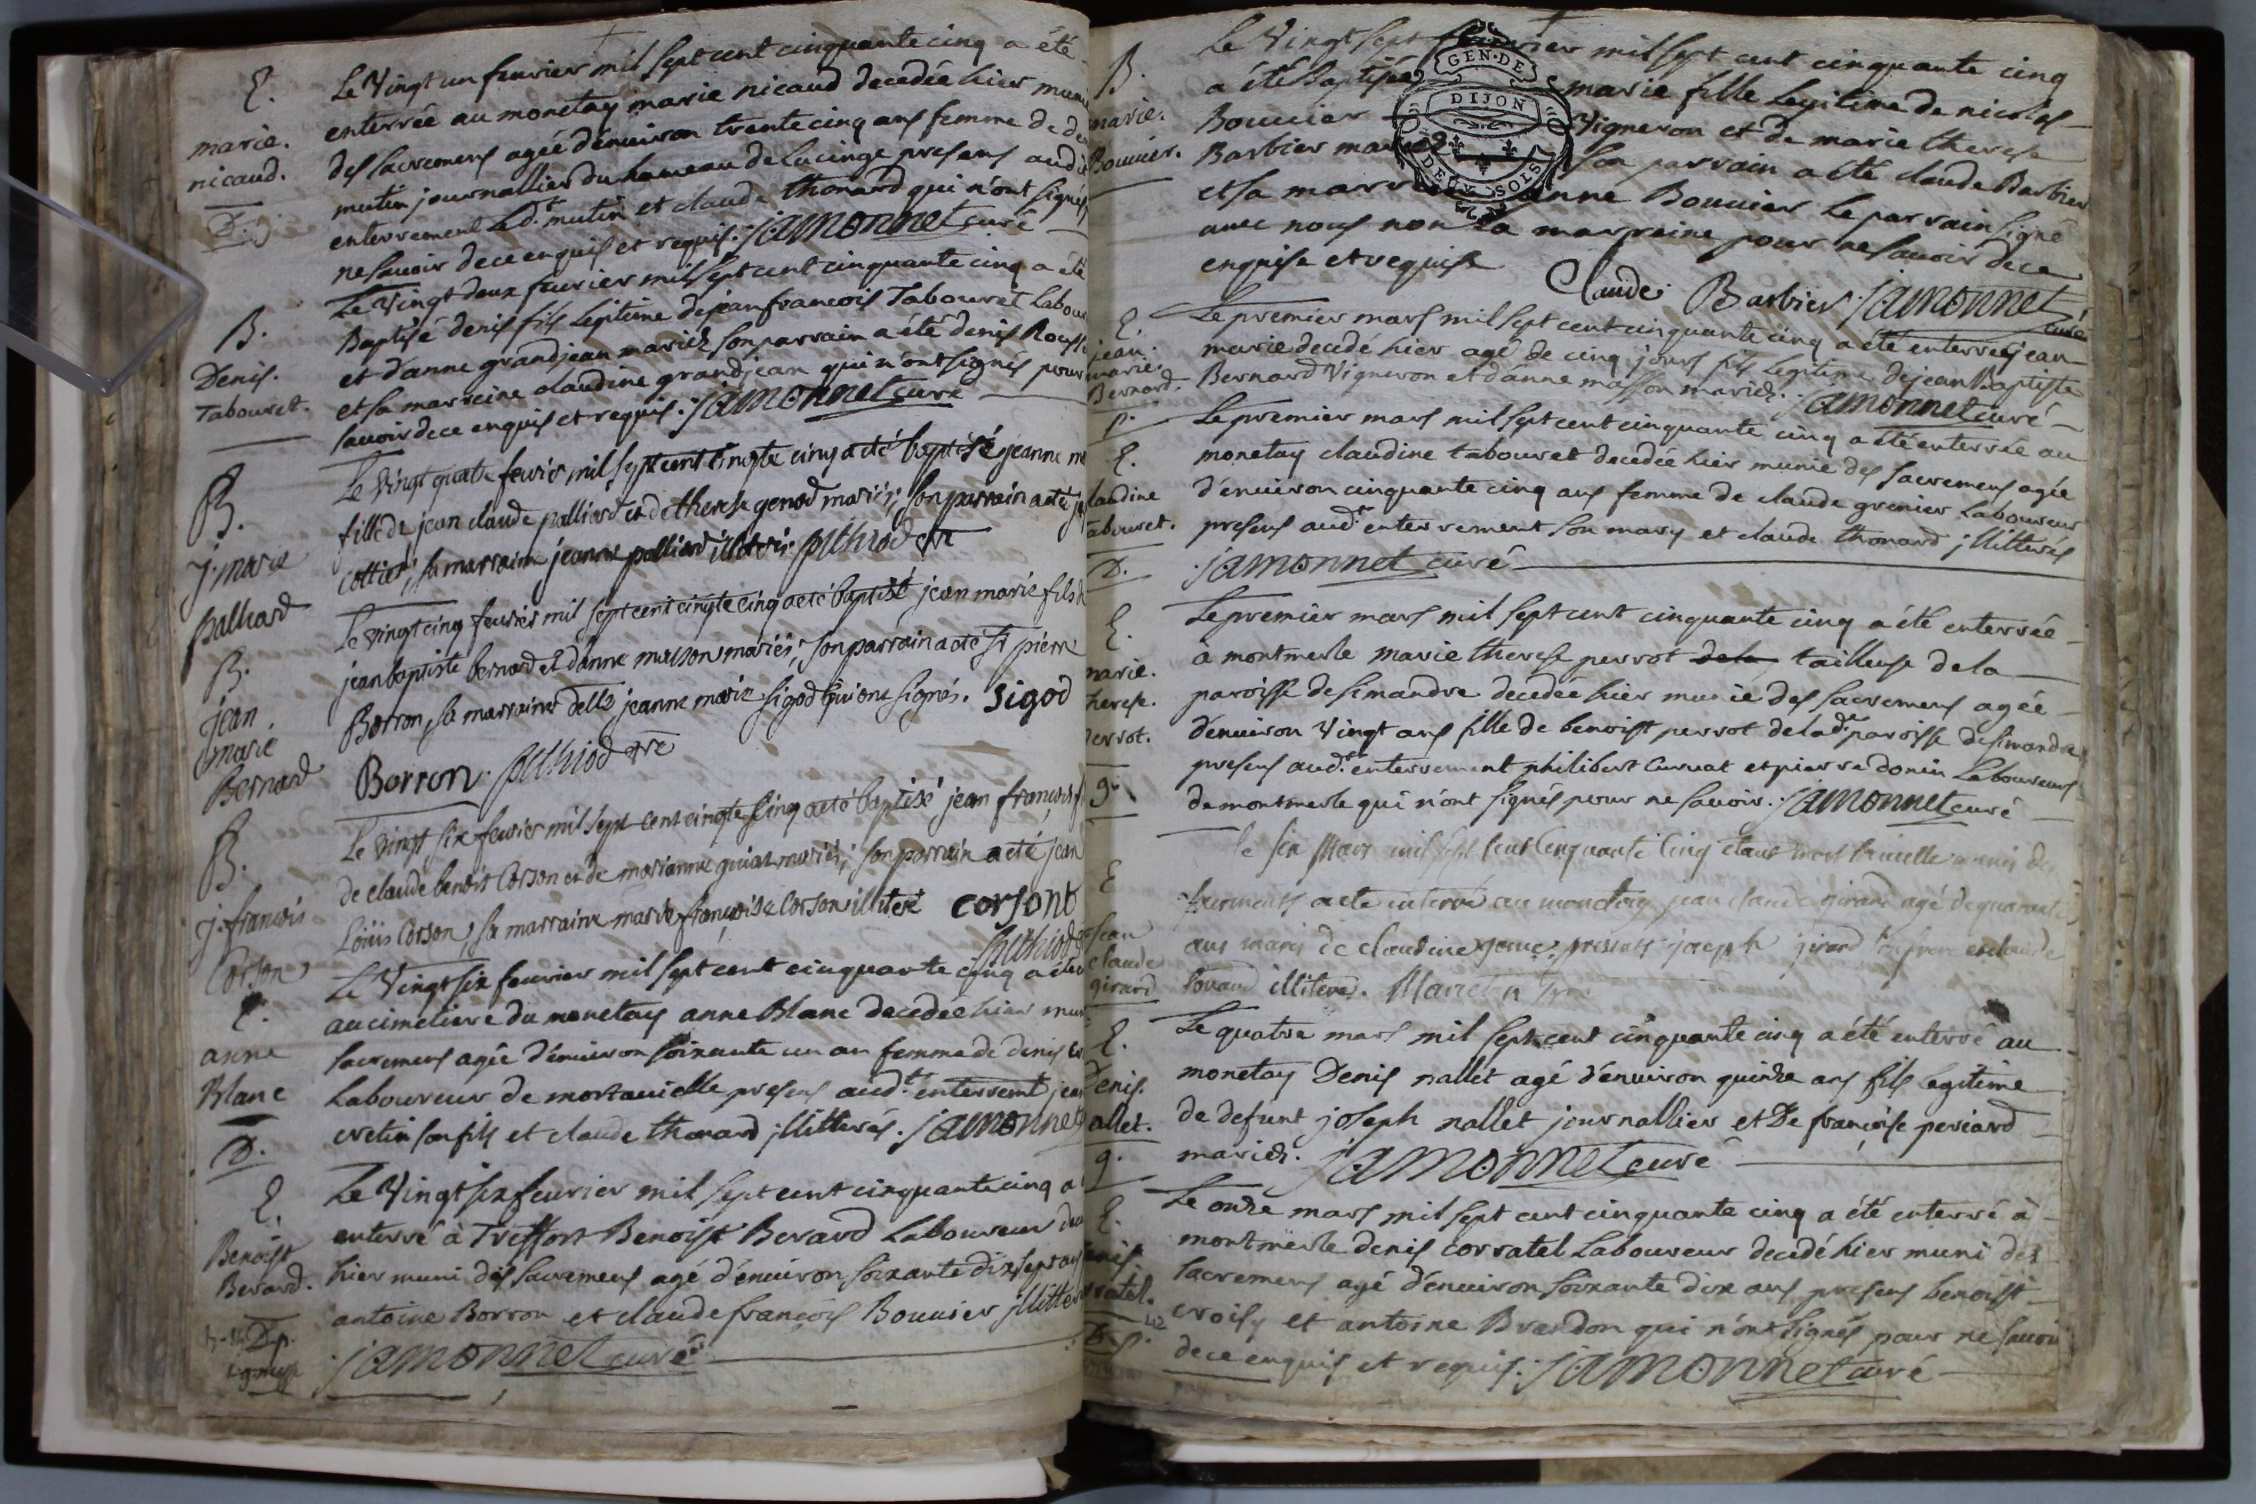 E.
marie.
nicaud.
D.
Le Vingt un feuvrier mil sept cent cinquante cinq a été
enterrée au monetay marie nicaud decedée hier munie
des sacremens agée d'enuiron trente cinq ans femme de
mutin journallier du hameau de lucinge presens aud.
enterrement led.t mutin et claude thonard qui n'ont signés
ne sauoir de ce enquis et requis. jamonnet curé
B.
Denis.
Tabouret.
Le Vingt deux feuvrier mil sept cent cinquante cinq a été
Baptisé denis fils legitime de jean francois Tabouret Labou
et d'anne grandjean mariez son parrain a été denis Rouss
et sa marreine claudine grandjean qui n'ont signés pour
sauoir de ce enquis et requis. jamonnet curé
B.
j. marie
palliard
Le vingt quatre feurier mil sept cent cinqte cinq a eté baptisé jeanne m
fille de jean claude palliard et de therese genod mariés; son parrain a eté
cottier; sa marraine jeanne palliard illiterés. puthiod vre
B.
jean.
marie
Bernard
Le vingt cinq feurier mil sept cent cinqte cinq a eté baptisé jean marie fils d
jean baptiste bernard et d'anne masson mariés; son parrain a eté Sr pierre
Borron, sa marraine delle jeanne marie sigod qui ont signés. Sigod
Borron. puthiod vre
B.
j. francois
Corson
Le vingt six feurier mil sept cent cinqte cinq a eté baptisé jean francois f
de claude benoit Corson et de marianne guiat mariés; son parrain a eté jean
Loüis Corson, sa marraine marie françoise Corson illiteré corsont
puthiod
E.
anne
Blanc
D.
Le Vingt six feuvrier mil sept cent cinquante cinq a été
au cimetiere du monetay anne Blanc decedée hier mun
sacremens agée d'enuiron soixante un an femme de denis
Laboureur de mortauielle presens aud.t enterremt jean
cretin son fils et claude thonard jllitterés. jamonnet
E.
Benoist
Berard.
D. p.
Le Vingt six feuvrier mil sept cent cinquante cinq a
enterré à Treffort Benoist Berard Laboureur
hier muni des sacremens agé d'enuiron soixante dix sept ans
antoine Borron et claude françois Bouuier jllitter
jamonnet curé
GEN. DE
DIJON
DEUX SOLS
B.
marie.
Bouuier.
Le Vingt sept feuvrier mil sept cent cinquante cinq
a été baptisée marie fille legitime de nicolas
Bouuier Vigneron et de marie therese
Barbier mariez son parrain a été claude Barbier
et sa marreine anne Bouuier le parrain signé
auec nous non la marreine pour ne sauoir de ce
enquise et requise
Claude Barbier jamonnet curé
E.
jean.
marie.
Bernard.
p.
Le premier mars mil sept cent cinquante cinq a été enterré jean
marie decedé hier agé de cinq jours fils legitime de jean Baptiste
Bernard Vigneron et d'anne masson mariez. jamonnet curé
E.
laudine
tabouret.
D.
Le premier mars mil sept cent cinquante cinq a été enterrée au
monetay claudine tabouret decedée hier munie des sacremens agée
d'enuiron cinquante cinq ans femme de claude grenier Laboureur
presens aud.t enterrement son mary et claude thonard jllitterés
jamonnet curé
E.
marie.
therese.
perrot.
g.
Le premier mars mil sept cent cinquante cinq a été enterrée
à montmerle marie therese perrot de la tailleuse de la
paroisse de simandre decedée hier munie des sacremens agée
d'enuiron Vingt ans fille de benoist perrot de lad.e paroisse de simandre
presens aud.t enterrement philibert curuat et pierre donin Laboureurs
de montmerle qui n'ont signés pour ne sauoir. jamonnet curé
E
Jean
claude
girard
le six Mars mil sept Cent Cinquante Cinq
sacrements a ete enterré au monetay jean claude girard agé de quarante
ans maris de claudine presents joseph girard son frere et claude
tonard illiterés. Mariet
E.
Denis.
allet.
g.
Le quatre mars mil sept cent cinquante cinq a été enterré au
monetay Denis nallet agé d'enuiron quinze ans fils legitime
de defunt joseph nallet journallier et De françoise periard
mariez. jamonnet curé
E.
enis.
ratel.
D. p.
Le onze mars mil sept cent cinquante cinq a été enterré à
montmerle denis corratel Laboureur decedé hier muni des
sacremens agé d'enuiron soixante dix ans presens benoist
croisy et antoine Brandon qui n'ont signés pour ne sauoir
de ce enquis et requis. jamonnet curé